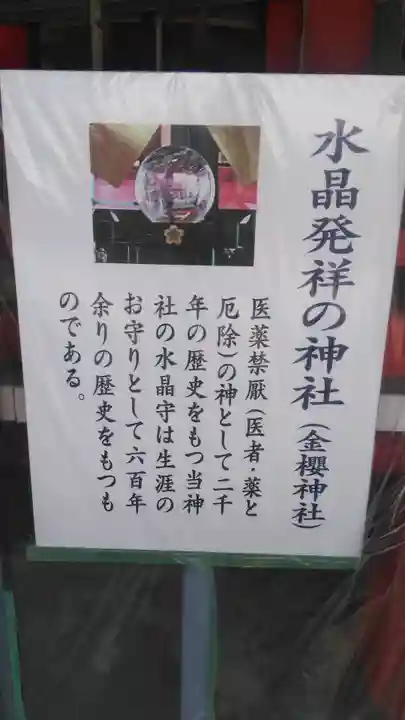 水晶発祥の神社(金櫻神社)
医薬禁厭(医者・薬と
厄除)の神として二千
年の歴史をもつ当神
社の水晶守は生涯の
お守りとして六百年
余りの歴史をもつも
のである。